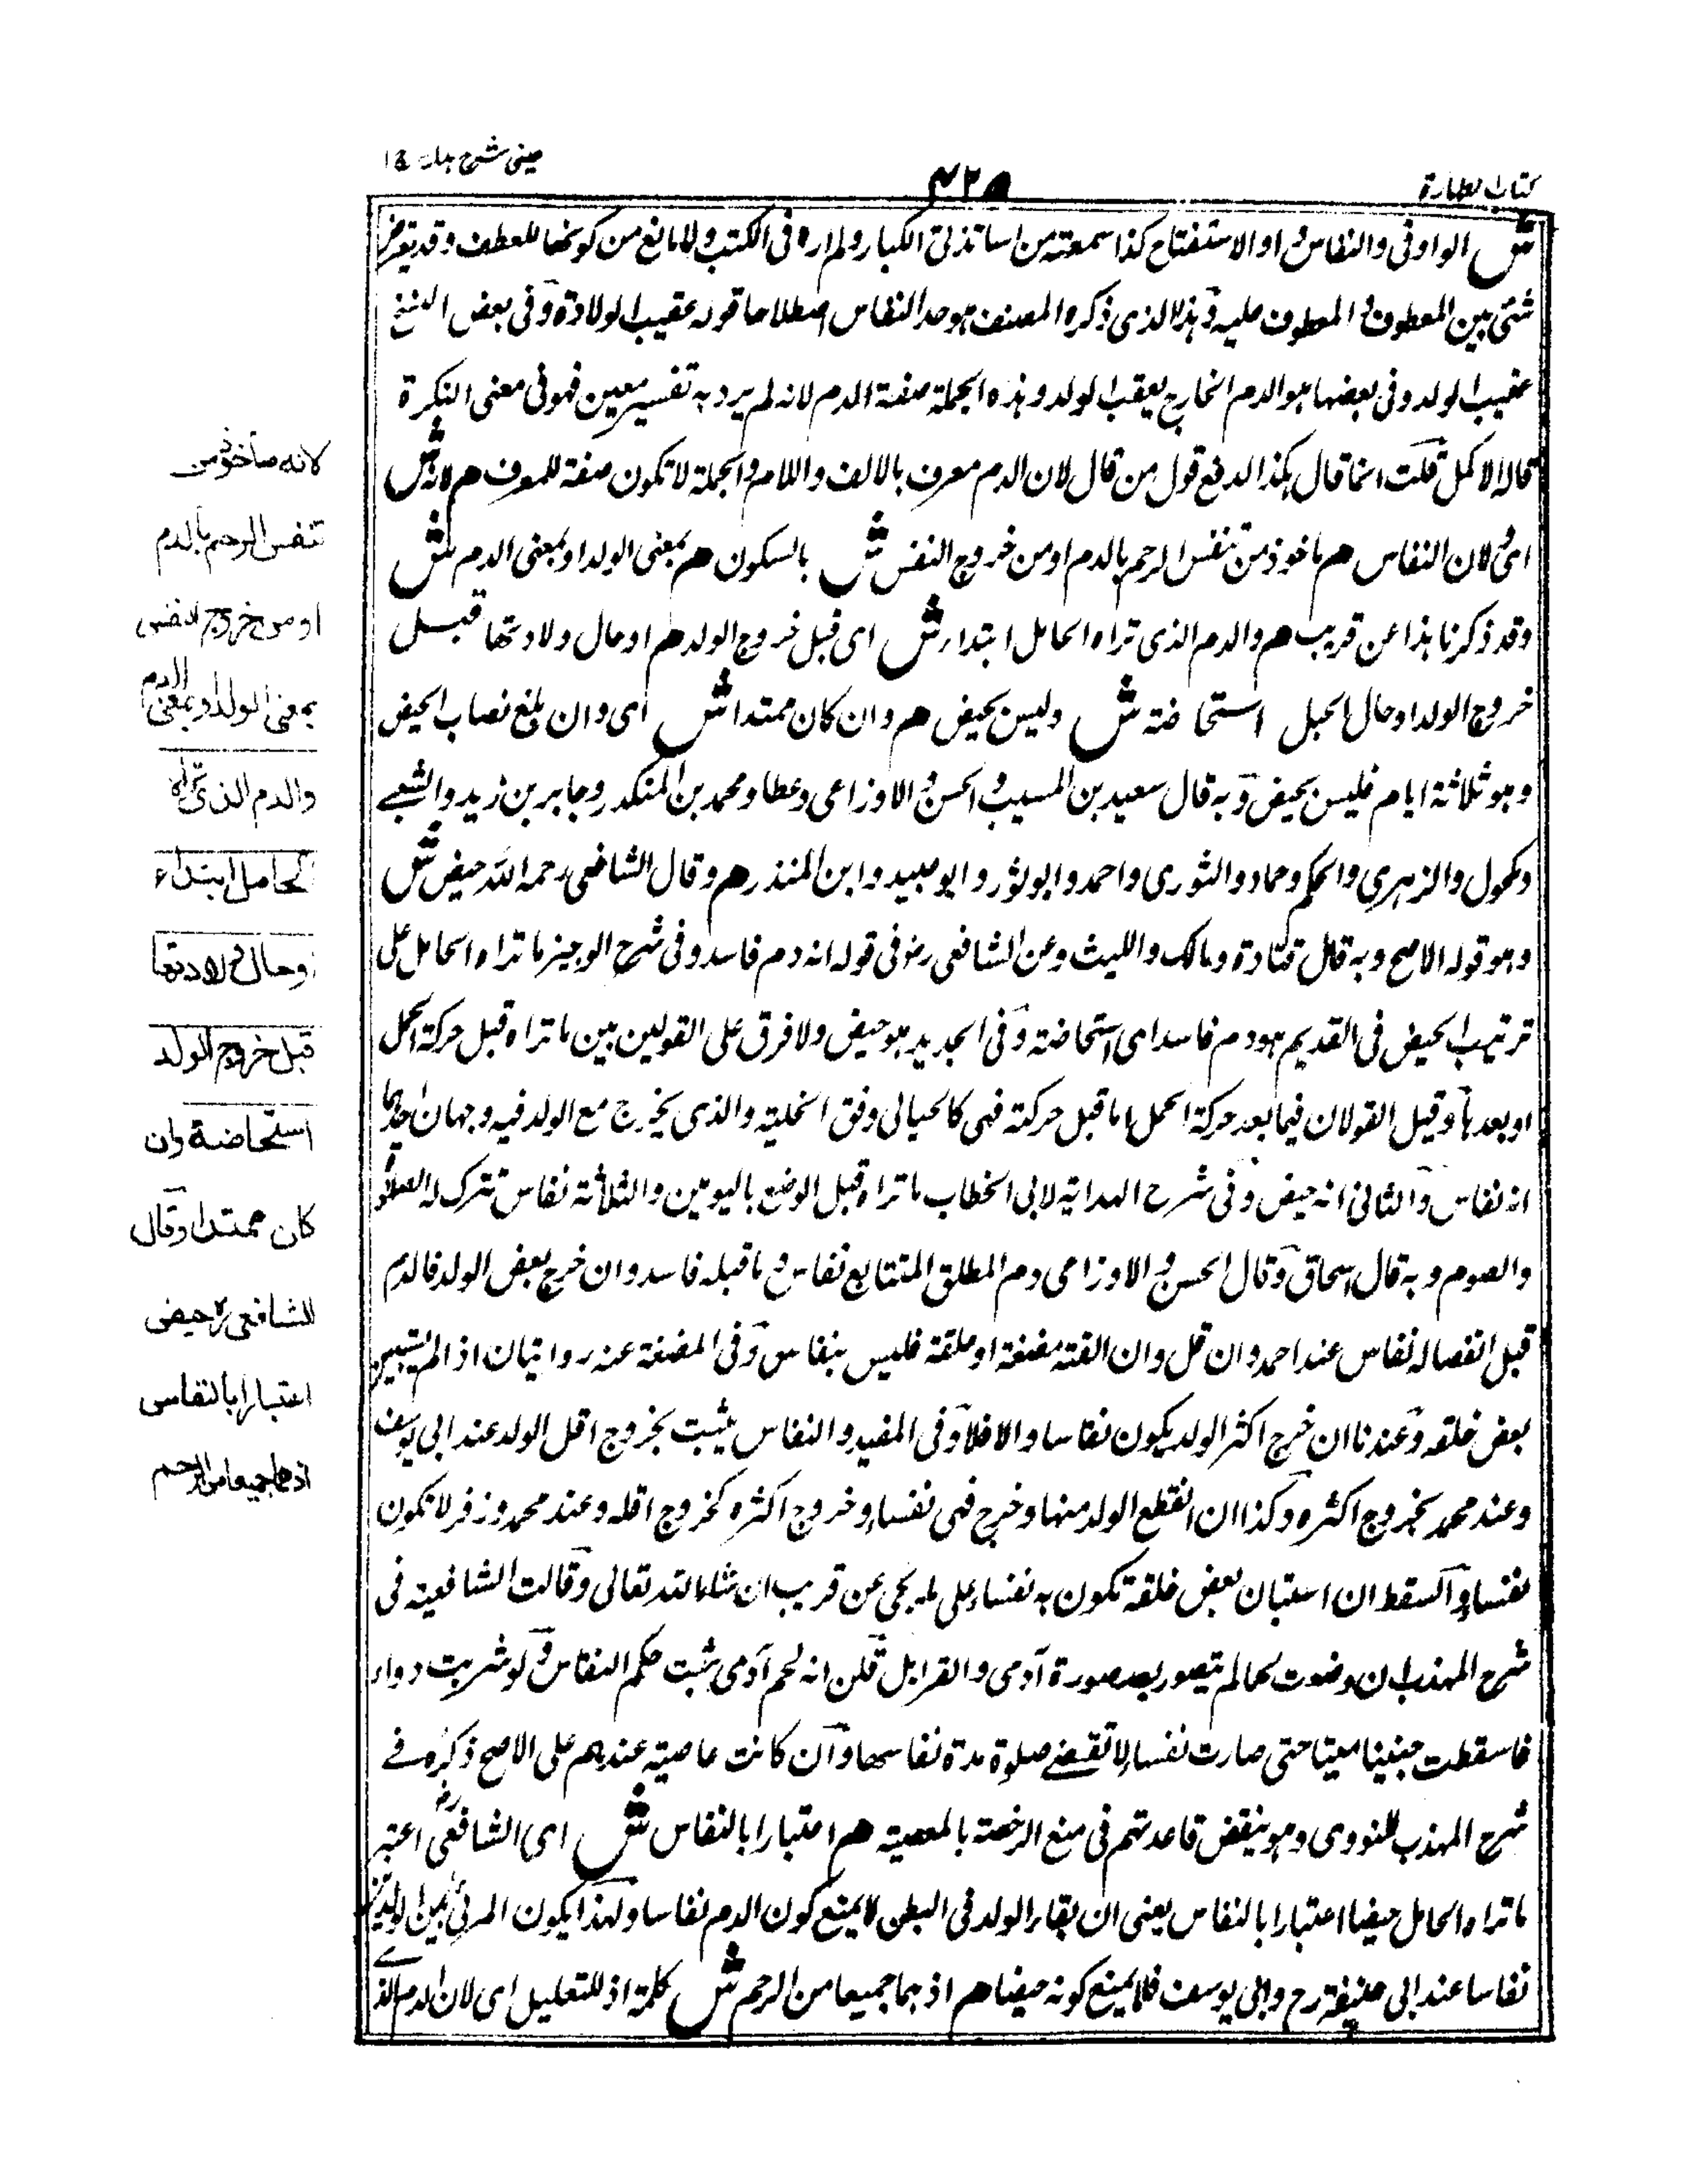 كتاب الطهارة
٤٢٥
عيني شرح هداية ج ١
ش الواو في والنفاس واو الاستفتاح كذا سمعته من اساتذتى الكبار ولم اره فى الكتب ولا مانع من كونها للعطف وقد يقع
شئ بين المعطوف والمعطوف عليه وهذا الذى ذكره المصنف هو حد النفاس اصطلاحا قوله عقيب الولادة وفى بعض النسخ
عقيب الولد وفى بعضها هو الدم الخارج يعقب الولد وهذه الجملة صفة الدم لانه لم يرد به تفسير معين فهو فى معنى النكرة
قاله الاكمل قلت انما قال هكذا لدفع قول من قال لان الدم معرف بالالف واللام والجملة لا تكون صفة للمعرف هم لانه ش
اى لان النفاس هم ماخوذ من تنفس الرحم بالدم او من خروج النفس ش بالسكون هم بمعنى الولد او بمعنى الدم ش
وقد ذكرنا هذا عن قريب هم والدم الذى تراه الحامل ابتداء ش اى قبل خروج الولد هم او حال ولادتها قبل
خروج الولد او حال الحبل استحاضة ش وليس بحيض هم وان كان ممتدا ش اى وان بلغ نصاب الحيض
وهو ثلاثة ايام فليس بحيض وبه قال سعيد بن المسيب والحسن والاوزاعى وعطا ومحمد بن المنكدر وجابر بن زيد والشعبے
ومكحول والزهرى والحكم وحماد والثورى واحمد وابو ثور وابو عبيد وابن المنذر هم وقال الشافعى رحمه الله حيض ش
وهو قوله الاصح وبه قال قتادة ومالك والليث وعن الشافعى رض فى قوله انه دم فاسد وفى شرح الوجيز ما تراه الحامل على
ترتيب الحيض فى القديم هو دم فاسد اى استحاضة وفى الجديد هو حيض ولا فرق على القولين بين ما تراه قبل حركة الحمل
او بعدها وقيل القولان فيما بعد حركة الحمل اما قبل حركته فهى كالحيالى وفق الخلية والذى يخرج مع الولد فيه وجهان احدهما
انه نفاس والثانى انه حيض وفى شرح الهداية لابى الخطاب ما تراه قبل الوضع باليومين والثلاثة نفاس تترك له الصلوة
والصوم وبه قال اسحاق وقال الحسن والاوزاعى دم المطلق المتتابع نفاس وما قبله فاسد وان خرج بعض الولد فالدم
قبل انفصاله نفاس عند احمد وان قل وان القته مضغة او علقة فليس بنفاس وفى المضغة عنه روايتان اذا لم يتبين
بعض خلقه وعندنا ان خرج اكثر الولد يكون نفاسا والا فلا وفى المفيد والنفاس يثبت بخروج اقل الولد عند ابى يوسف
وعند محمد بخروج اكثره وكذا ان انقطع الولد منها وخرج فهى نفساء وخروج اكثره كخروج اقله وعند محمد وزفر لا تكون
نفساء والسقط ان استبان بعض خلقه تكون به نفساء على ما يجئ عن قريب ان شاء الله تعالى وقالت الشافعية فى
شرح المهذب ان وضعت لحما لم يتصور بعد صورة آدمى والقوابل قلن انه لحم آدمى ثبت حكم النفاس ولو شربت دواء
فاسقطت جنينا ميتا حتى صارت نفساء لا تقضے صلوة مدة نفاسها وان كانت عاصية عندهم على الاصح ذكره فے
شرح المهذب للنووى وهو ينقض قاعدتهم فى منع الرخصة بالمعصية هم اعتبارا بالنفاس ش اى الشافعى رح اعتبر
ما تراه الحامل حيضا اعتبارا بالنفاس يعنى ان بقاء الولد فى البطن لا يمنع كون الدم نفاسا ولهذا يكون المرئى بين الولدين
نفاسا عند ابى حنيفة رح وابى يوسف فلا يمنع كونه حيضا هم اذ هما جميعا من الرحم ش كلمة اذ للتعليل اى لان الدم الذے
لانه مأخوذ من
تنفس الرحم بالدم
او من خروج النفس
بمعنى الولد او بمعنى الدم
والدم الذى تراه
الحامل ابتداء
او حال ولادتها
قبل خروج الولد
استحاضة وان
كان ممتدا وقال
الشافعى رح حيض
اعتبارا بالنفاس
اذ هما جميعا من الرحم